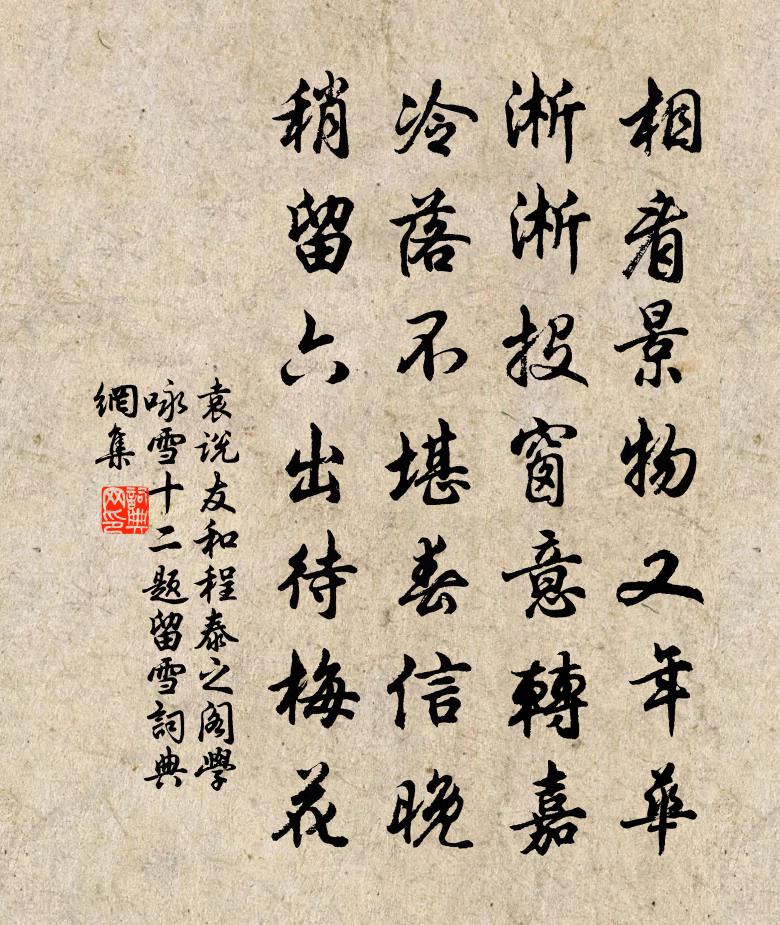 相看景物又年華
淅淅投窗意轉嘉
冷落不堪春信晚
稍留六出待梅花
袁说友和程泰之阁學
咏雪十二题留雪詞典
網集
詞典网印